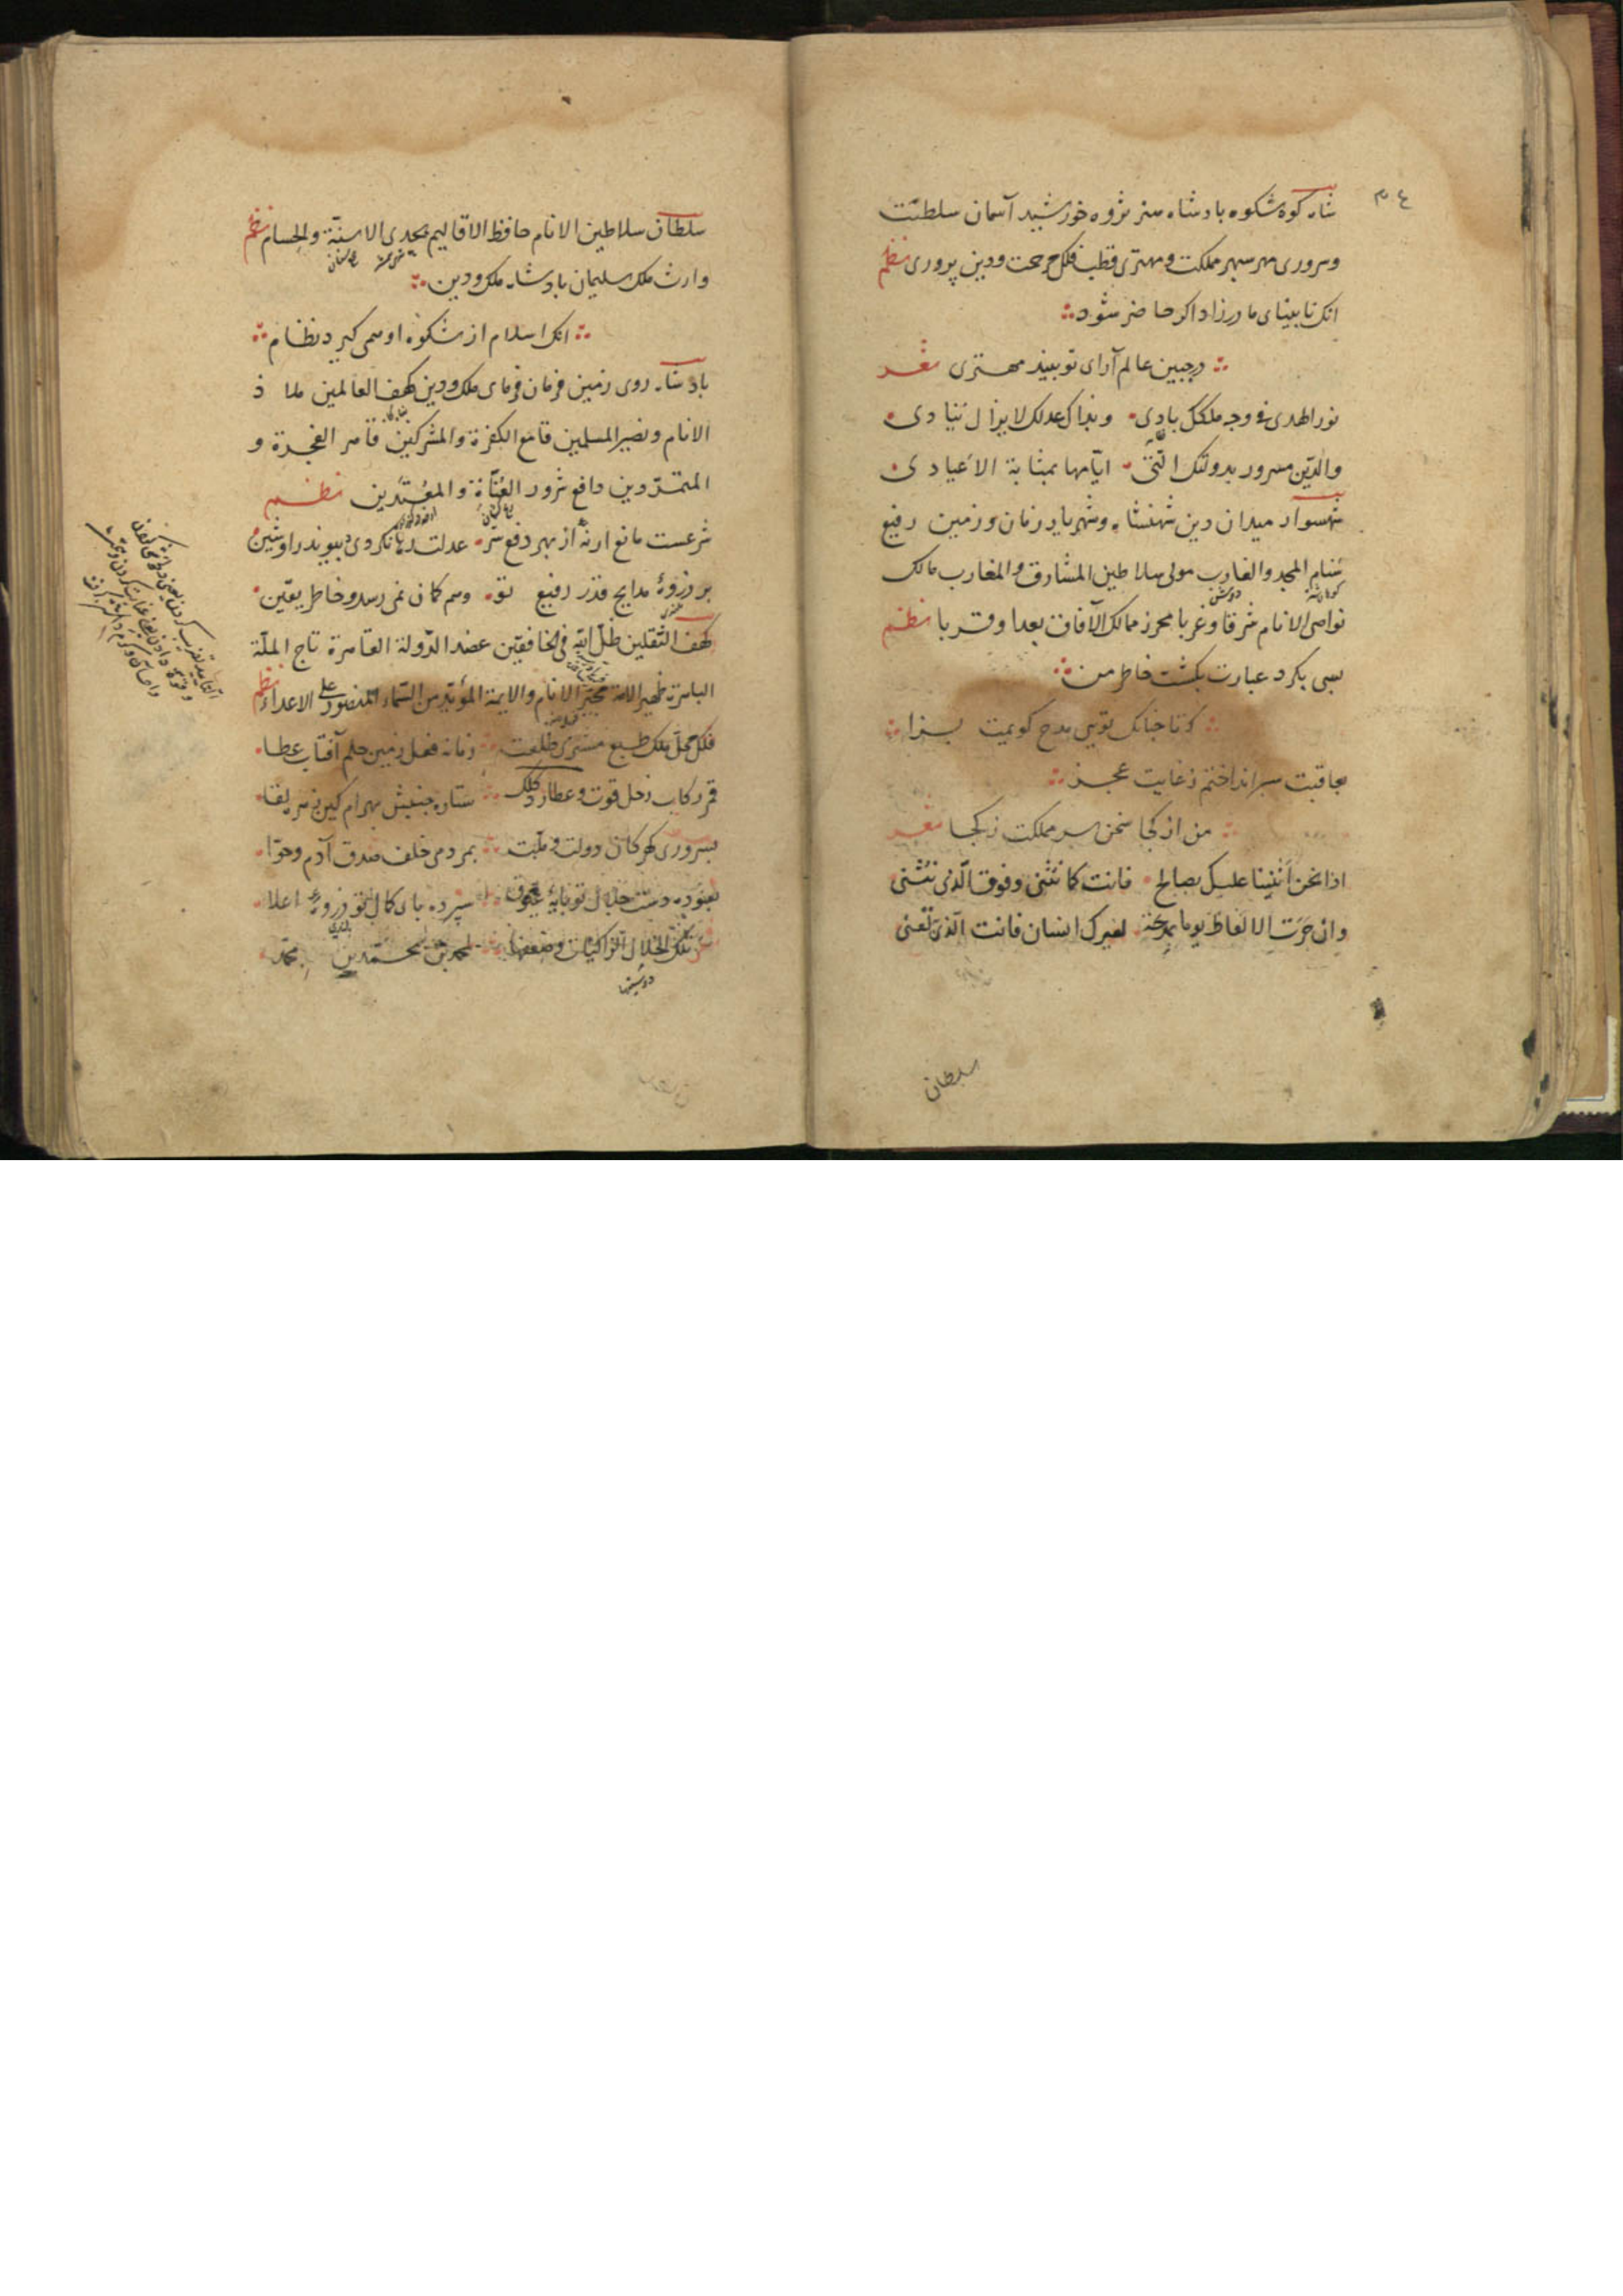 ٣٤
شاه کوه شکوه بادشاه هنر پژوه خورشید آسمان سلطنت
و سروری مهر سپهر مملکت و مهتری قطب فلک مرحمت و دین پروری نظم
انک نابینای مادرزاد اکر حاضر شود
در جبین عالم آرای تو بیند مهتری شعر
نور الهدی فی وجه ملکک بادی وبذاک عدلک لا یزال ینادی
والدین مسرور بدولتک التی ایامها بمثابة الاعیادی
شهسوار میدان دین شهنشاه و شهریار زمان و زمین رفیع
سنام المجد والغارب مولی سلاطین المشارق والمغارب مالک
نواصی الانام شرقا وغربا محرز ممالک الآفاق بعدا وقربا نظم
بسی بکرد عبارت بکشت خاطر من
که تا چنانک تویی مدح کویمت بسزا
بعاقبت سپر انداختم ز غایت عجز
من از کجا سخن سر مملکت ز کجا شعر
اذا نحن اثنینا علیک بصالح فانت کما نثنی وفوق الذی نثنی
وان جرت الالفاظ یوما بمدحة لغیرک انسان فانت الذی نعنی
سلطان
سلطان سلاطین الانام حافظ الاقالیم بحدی الاسنة والحسام نظم
وارث ملک سلیمان بادشاه ملک و دین
انک اسلام از شکوه او همی کیرد نظام
بادشاه روی زمین فرمان فرمای ملک و دین کهف العالمین ملاذ
الانام ونصیر المسلمین قامع الکفرة والمشرکین قاهر الفجرة و
المتمردین دافع شرور العتاة والمعتدین نظم
شرعست مانع ارنه از بهر دفع شر عدلت
بر ذروهٔ مدایح قدر رفیع تو وهم کمان نمی رسد و خاطر یقین
کهف الثقلین ظل الله فی الخافقین عضد الدولة القاهرة تاج الملة
الباهرة ظهیر الامة مجیر الانام والایمة المؤید من السماء المنصور علی الاعداء نظم
فلک محل ملک طبع مشتری طلعت زمانه فعل زمین حلم آفتاب عطا
قمر رکاب زحل قوت و عطارد کلک ستاره جنبش بهرام کین
بسروری کهر کان دولت و ملت بمردمی خلف صدق آدم و حوا
نموده دست جلال تو پایهٔ عیوق سپرده پای کمال تو ذروهٔ اعلا
تلک الخلال الزاکیات وضعفها لمحمد بن محمد بن محمد